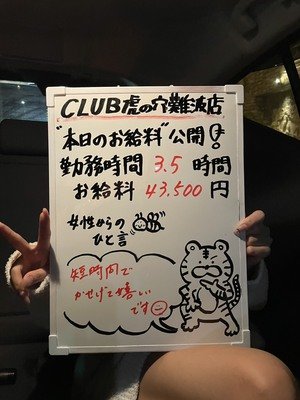 CLUB虎の穴難波店
"本日のお給料"公開!
勤務時間 3.5 時間
お給料 43,500 円
女性からの
ひと言
短時間で
かせげて嬉しい
です☺